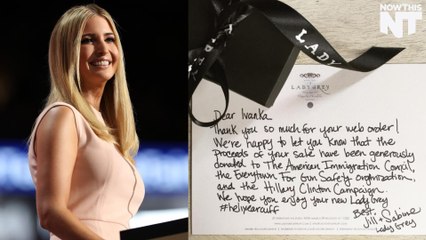 NOWTHIS
NT
LADY
LADY GREY
Dear Ivanka
Thank you so much for your web order!
We're happy to let you know that the
proceeds of your sale have been generously
donated to The American Immigration Council,
the Everytown For Gun Safety Organization,
and the Hillary Clinton Campaign.
We hope you enjoy your new Lady Grey
#helixearcuff
Best,
Jill + Sabine
Lady Grey